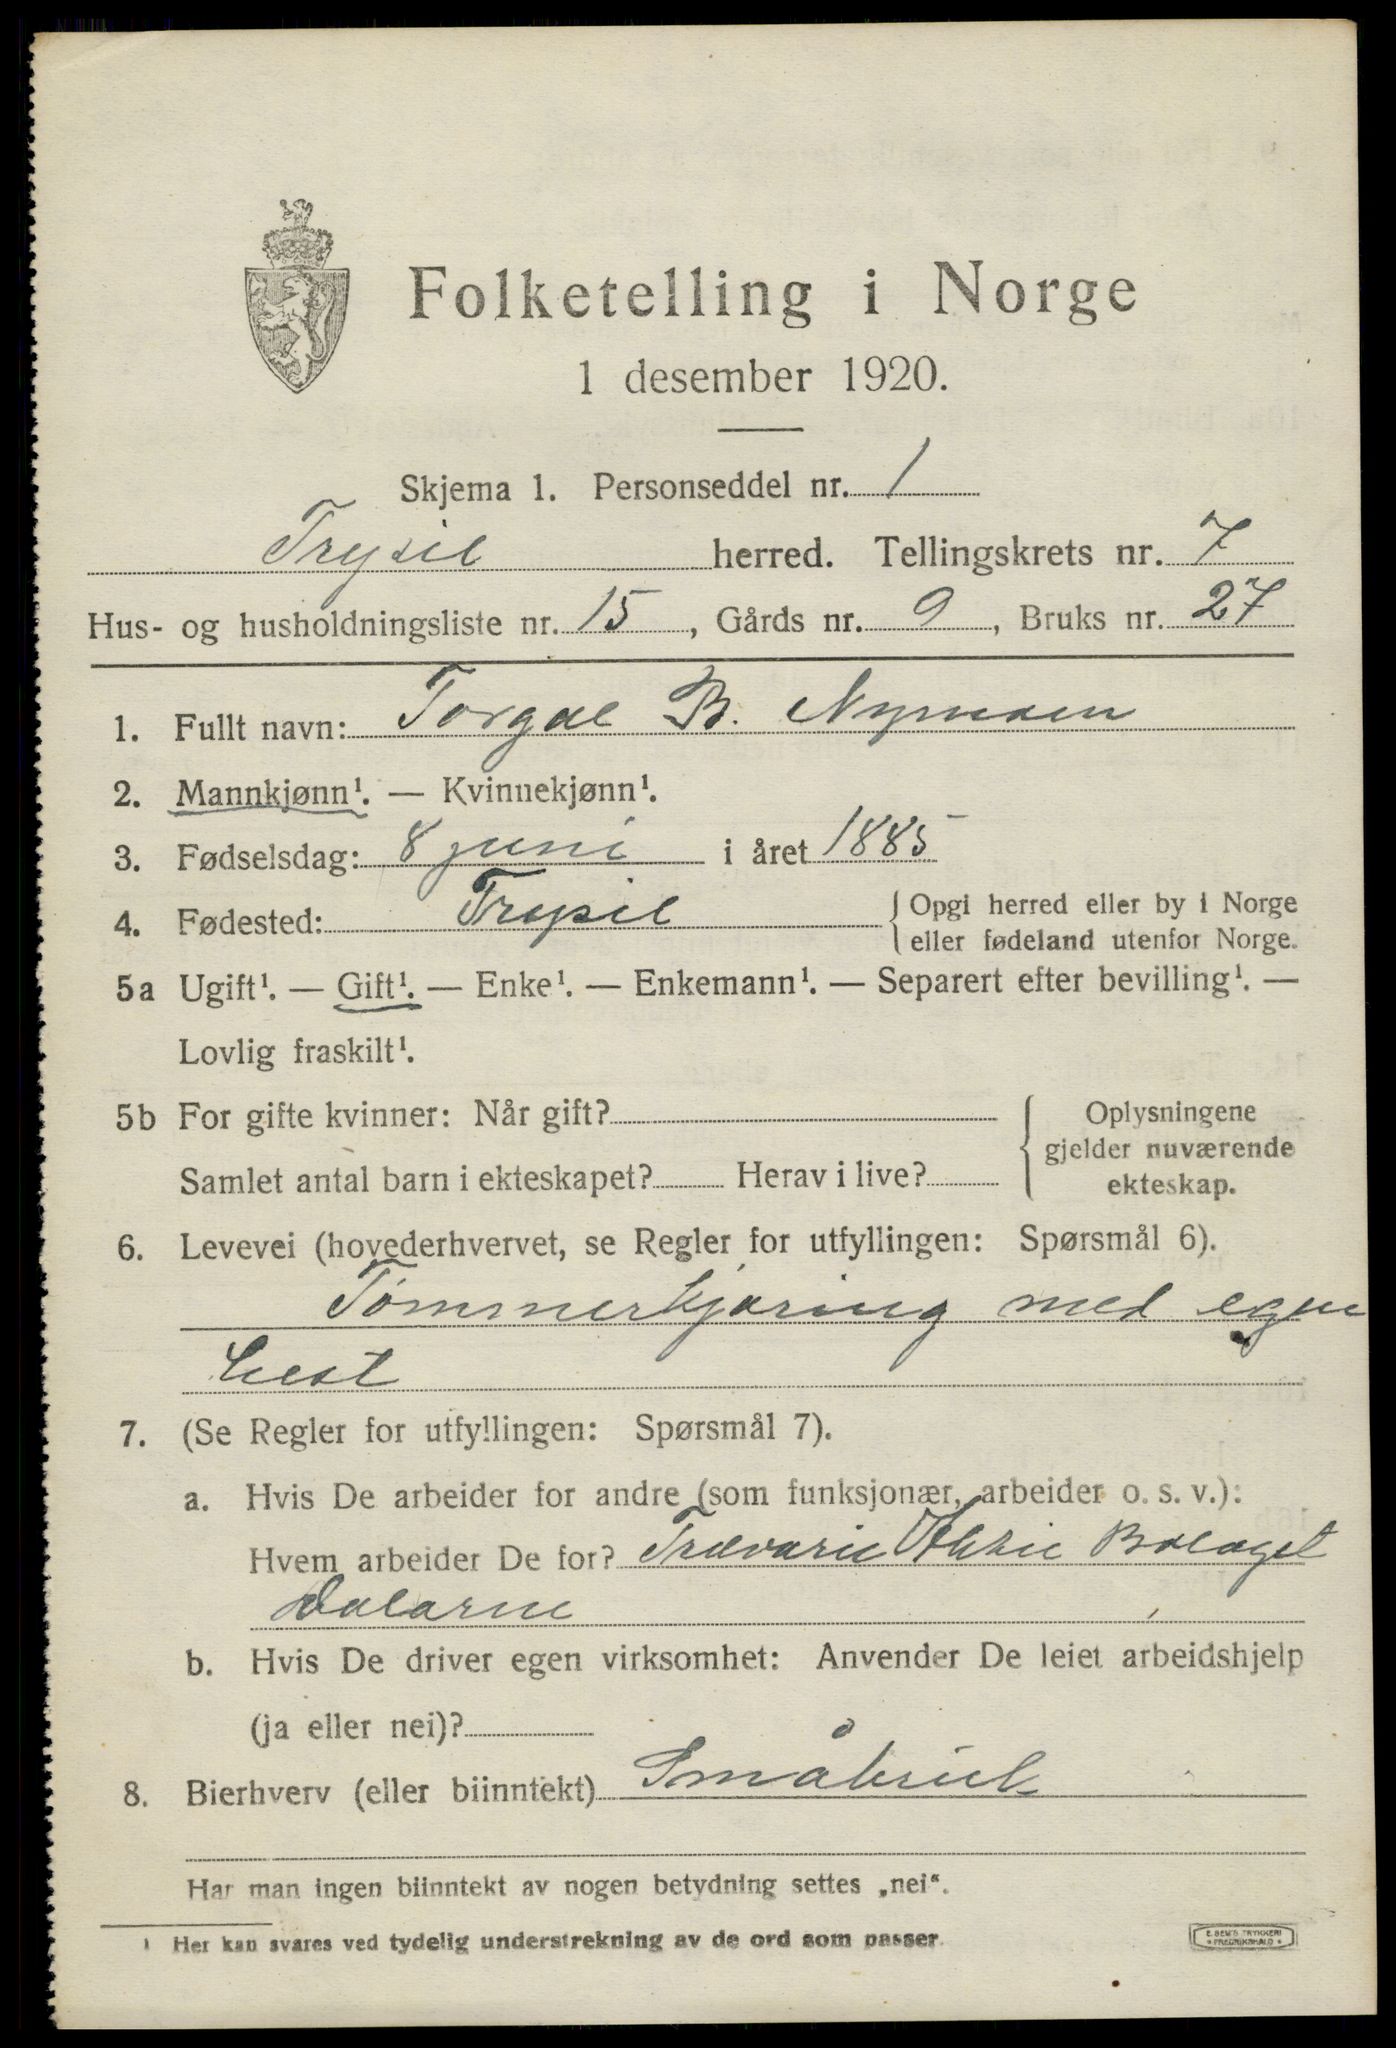 Folketelling i Norge
1 desember 1920.
Skjema 1. Personseddel nr. 1
Trysil herred. Tellingskrets nr. 7
Hus- og husholdningsliste nr. 15, Gårds nr. 9, Bruks nr. 27
1. Fullt navn: Torgal B. Nymoen
2. Mannkjønn¹. — Kvinnekjønn¹.
3. Fødselsdag: 8 juni i året 1885
4. Fødested: Trysil { Opgi herred eller by i Norge
eller fødeland utenfor Norge.
5a Ugift¹. — Gift¹. — Enke¹. — Enkemann¹. — Separert efter bevilling¹. —
Lovlig fraskilt¹.
5b For gifte kvinner: Når gift? { Oplysningene
gjelder nuværende
Samlet antal barn i ekteskapet? Herav i live? ekteskap.
6. Levevei (hovederhvervet, se Regler for utfyllingen: Spørsmål 6).
Tømmerkjøring med egen
hest
7. (Se Regler for utfyllingen: Spørsmål 7).
a. Hvis De arbeider for andre (som funksjonær, arbeider o. s. v.):
Hvem arbeider De for? Trævarie Aktie Bolaget
Dalarne
b. Hvis De driver egen virksomhet: Anvender De leiet arbeidshjelp
(ja eller nei)?
8. Bierhverv (eller biinntekt) Småbruk
Har man ingen biinntekt av nogen betydning settes „nei“.
¹ Her kan svares ved tydelig understrekning av de ord som passer.
E. SEM'S TRYKKERI
FREDRIKSHALD